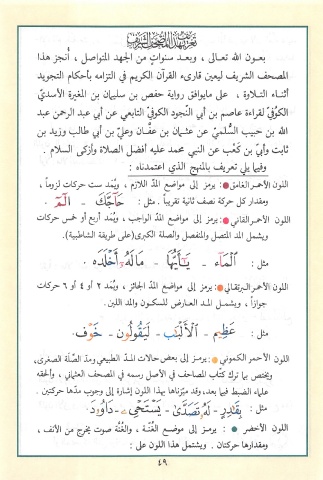 تعريف بهذا المصحف الشريف
بعون الله تعالى ، وبعد سنوات من الجهد المتواصل ، أُنجز هذا
المصحف الشريف ليعين قارىء القرآن الكريم في التزامه بأحكام التجويد
أثناء التلاوة ، على مايوافق رواية حفص بن سليمان بن المغيرة الأسديّ
الكوفيّ لقراءة عاصم بن أبي النجود الكوفي التابعي عن أبي عبد الرحمن عبد
الله بن حبيب السُّلميّ عن عثمان بن عفّان وعليّ بن أبي طالب وزيد بن
ثابت وأبيّ بن كَعْب عن النبي محمد عليه أفضل الصلاة وأزكى السلام .
وفيما يلي تعريف بالمنهج الذي اعتمدناه :
اللون الأحمر الغامق : يرمز إلى مواضع المدّ اللازم ، ويُمدّ ست حركات لزوماً ،
ومقدار كل حركة نصف ثانية تقريباً . مثل : حَآجَّكَ - الٓمٓ
اللون الأحمر القاني : يرمز إلى مواضع المدّ الواجب ، ويُمد أربع أو خمس حركات
ويشمل المد المتصل والمنفصل والصلة الكبرى (على طريقة الشاطبية).
مثل : ٱلْمَآءَ - يَٰٓأَيُّهَا - مَالَهُۥٓ أَخْلَدَهُۥ
اللون الأحمر البرتقالي : يرمز إلى مواضع المدّ الجائز ، ويُمدّ ٢ أو ٤ أو ٦ حركات
جوازاً ، ويشمل المد العارض للسكون والمد اللين .
مثل : عَظِيمٌ - ٱلْأَلْبَٰبِ - لَيَقُولُونَ - خَوْفٌ
اللون الأحمر الكموني : يرمز إلى بعض حالات المد الطبيعي ومدّ الصّلة الصغرى،
ويختص بما ترك كتّاب المصاحف في الأصل رسمه في المصحف العثماني ، وألحقه
علماء الضبط فيما بعد، وقد ميّزناها بهذا اللون إشارة إلى وجوب مدّها حركتين .
مثل : بِقَٰدِرٍ - لَهُۥ تَصَدَّىٰ - يَسْتَحْىِۦ - دَاوُۥدَ .
اللون الأخضر : يرمز إلى موضع الغُنّة ، والغُنّة صوت يخرج من الأنف ،
ومقدارها حركتان . ويشتمل هذا اللون على :
٤٩